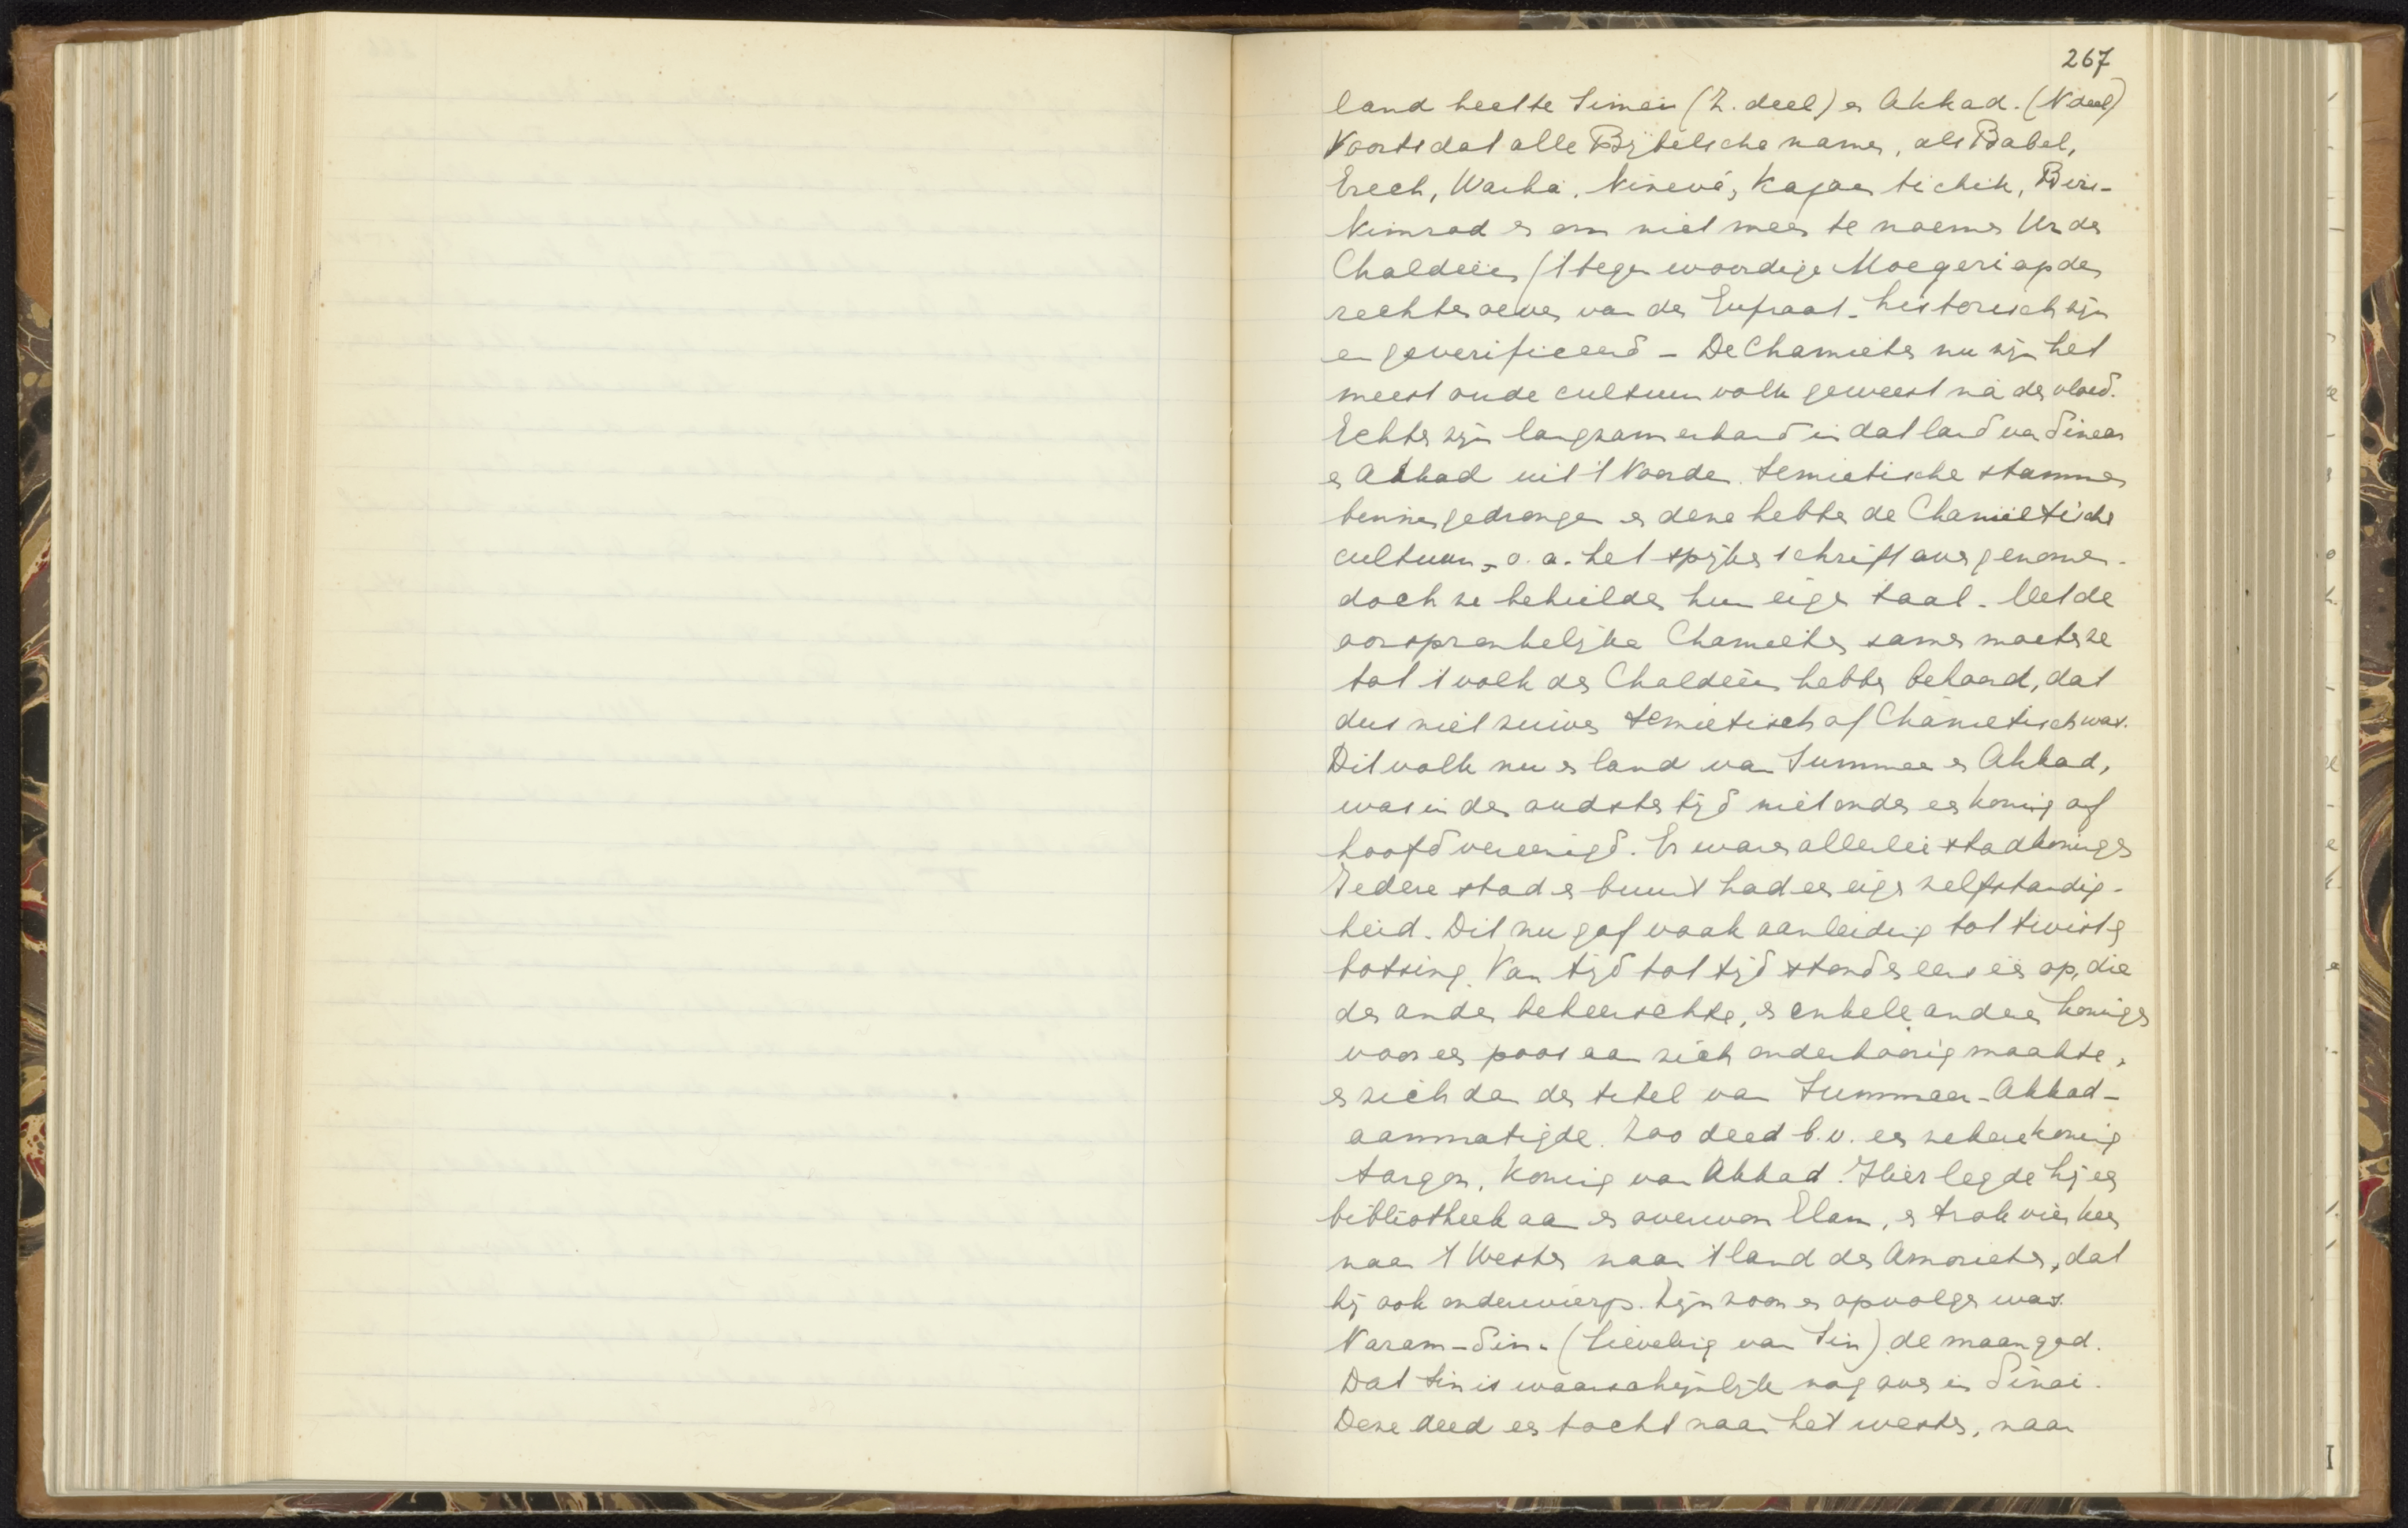 267
land heette Simeir (Z. deel) en Akkad. (N deel)
Voorts dat alle Bijbelsche namen, als Babel,
Erech, Warka, Ninevé, Kajoen tichik, Birs-
Nimrod en om niet meer te noemen Ur der
Chaldeiën ('t tegenwoordige Moegeri op den
rechter oever van den Eufraat. historisch zijn
en geverifieerd - De Chamieten nu zijn het
meest oude cultuurvolk geweest ná den vloed.
Echter zijn langzamerhand in dat land van Sinear
en Akkad uit 't Noorden Semietische stammen
binnengedrongen en deze hebben de Chamietische
cultuur, o.a. het spijkerschrift overgenomen.
doch ze behielden hun eigen taal. Met de
oorspronkelijke Chamieten samen moeten ze
tot 't volk der Chaldeiën hebben behoord, dat
dus niet zuiver Semietisch of Chamietisch was.
Dit volk nu en land van Summer en Akkad,
was in den oudsten tijd niet onder een koning of
hoofd vereenigd. Er waren allerlei stadkoningen
Iedere stad en buurt had een eigen zelfstandig-
heid. Dit nu gaf vaak aanleiding tot twist en
botsing. Van tijd tot tijd stond er eens één op, die
den ander beheerschte, en enkele andere koningen
voor een poos aan zich onderhoorig maakte,
en zich dan den titel van Summeer-Akkad-
aanmatigde. Zoo deed b.v. een zekere koning
Sargon, koning van Akkad. Hier legde hij een
bibliotheek aan en overwon Elam, en trok vier keer
naar 't Westen naar 't land der Amorieten, dat
hij ook onderwierp. Zijn zoon en opvolger was
Naram-Sin. (Lieveling van Sin) de maangod.
Dat Sin is waarschijnlijk nog over in Sinai.
Deze deed een tocht naar het westen, naar